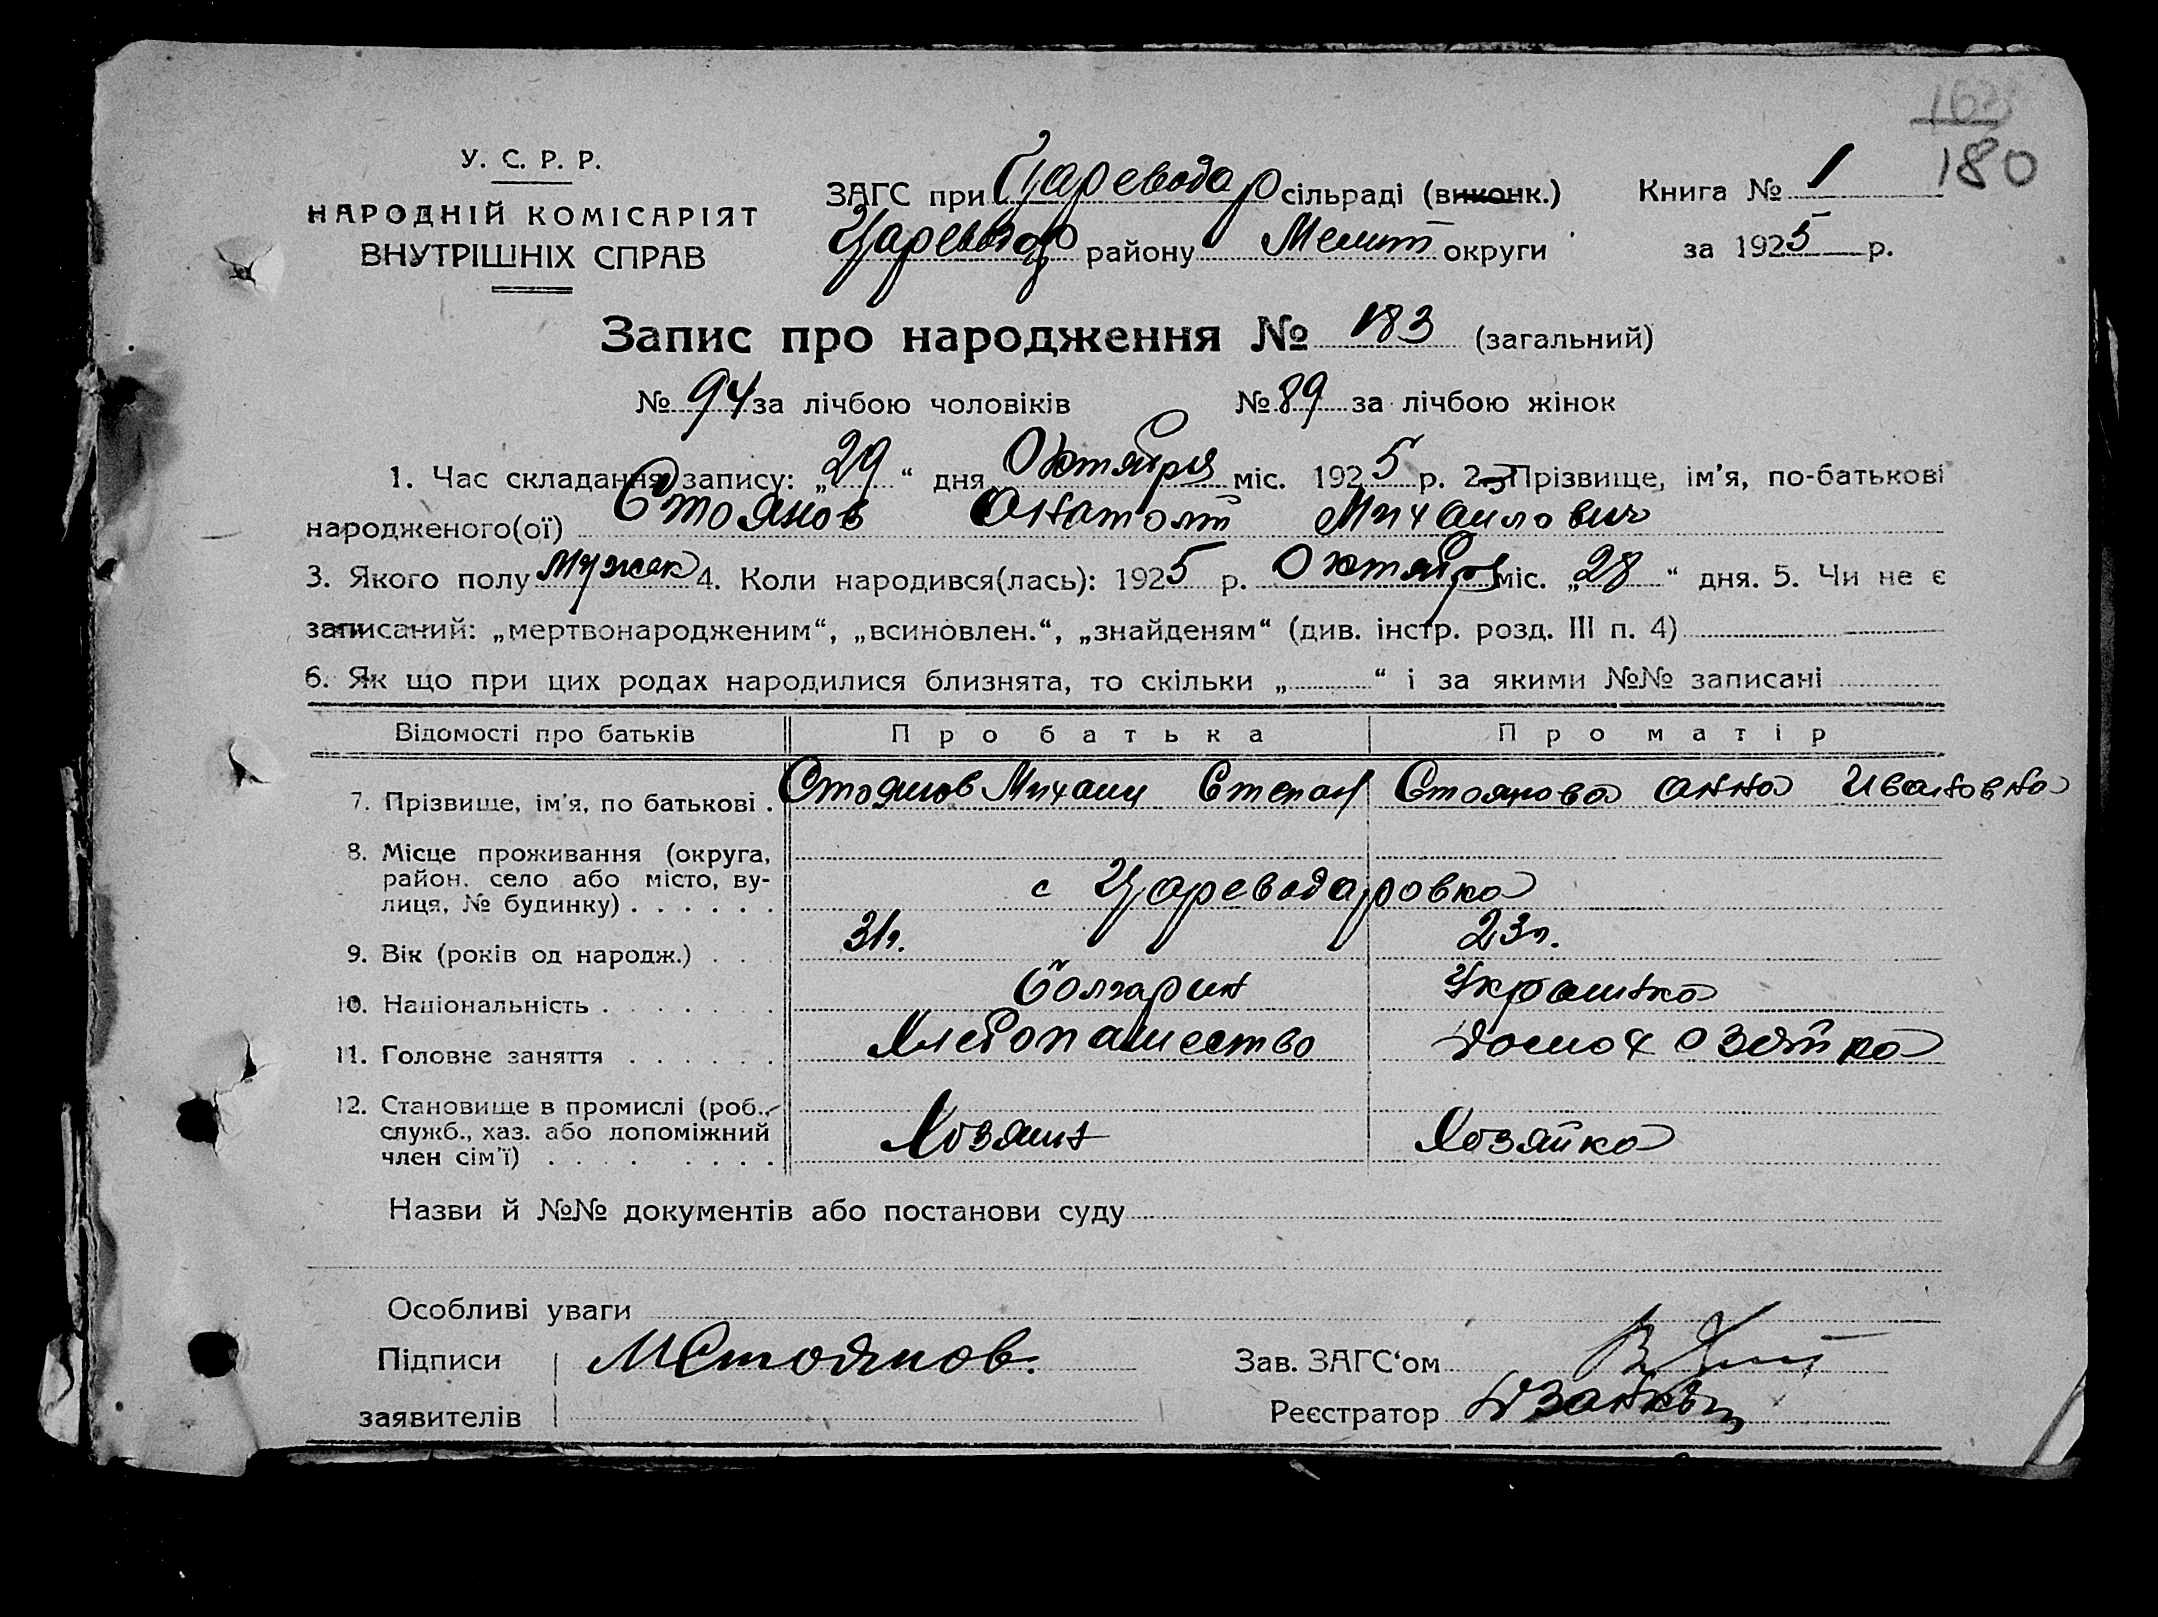 163
180
У. С. Р. Р.
НАРОДНІЙ КОМІСАРІЯТ
ВНУТРІШНІХ СПРАВ
ЗАГС при Царевода р сільраді (виконк.) Книга № 1
району Мелит округи за 1925 р.
Запис про народження № 183 (загальний)
№ 94 за лічбою чоловіків № 89 за лічбою жінок
1. Час складання запису: „29“ дня Октября міс. 1925 р. 2. Прізвище, ім'я, по-батькові
народженого(ої) Стоянов Анатолій Михаилович
3. Якого полу мужск 4. Коли народився(лась): 1925 р. Октября міс. „28“ дня. 5. Чи не є
записаний: „мертвонародженим“, „всиновлен.“, „знайденям“ (див. інстр. розд. III п. 4)
6. Як що при цих родах народилися близнята, то скільки „ “ і за якими №№ записані
Відомості про батьків Про батька Про матір
7. Прізвище, ім'я, по батькові . Стоянов Михаил Степан Стоянова Анна Ивановна
8. Місце проживання (округа,
район, село або місто, ву-
лиця, № будинку) . . . . . . с Цареводаровка
9. Вік (років од народж.) . . . 31л. 23л.
10. Національність . . . . . . . Болгарин Украинка
11. Головне заняття . . . . . . Хлебопашество Домохозяйка
12. Становище в промислі (роб.,
служб., хаз. або допоміжний
член сім'ї) . . . . . . . . Хозяин Хозяйка
Назви й №№ документів або постанови суду
Особливі уваги
Підписи МСтоянов. Зав. ЗАГС'ом
заявителів Реєстратор